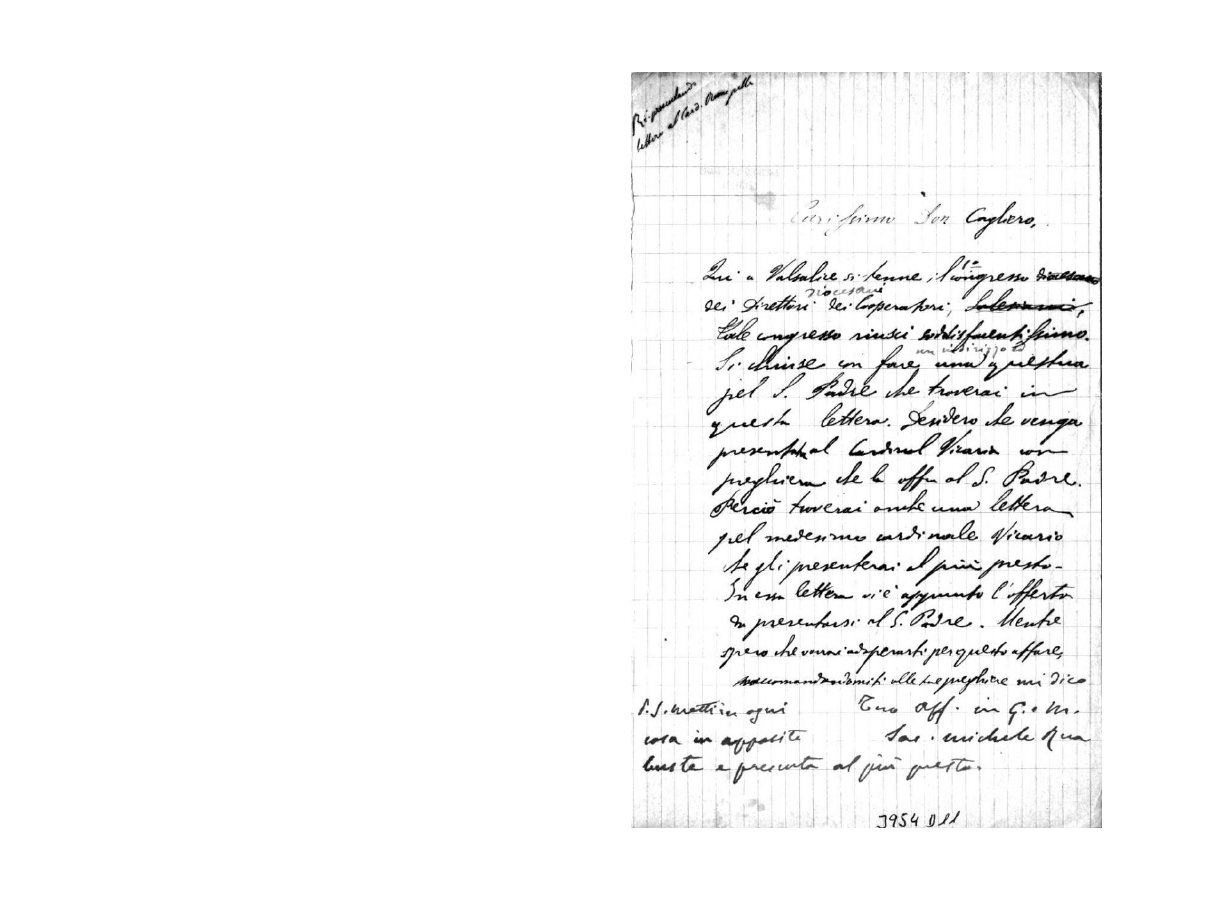 presentando
lettera al Card. Rampolla
Carissimo Don Cagliero,
Qui a Valsalice si tenne il 1º congresso diocesano
diocesani
dei Direttori dei Cooperatori, Salesiani,
Tale congresso riuscì soddisfacentissimo.
un indirizzo ed
Si chiuse con fare una questua
pel S. Padre che troverai in
questa lettera. Desidero che venga
presentata al Cardinal Vicario con
preghiera che la offra al S. Padre.
Perciò troverai anche una lettera
pel medesimo cardinale Vicario
che gli presenterai al più presto-
In essa lettera vi è appunto l'offerta
da presentarsi al S. Padre. Mentre
spero che vorrai adoperarti per questo affare,
raccomandandomiti alle tue preghiere mi dico
Tuo Aff. in G. e M.
Sac. Michele Rua
P.S. Metti in ogni
cosa in apposite
buste e presenta al più presto.
3954 D11